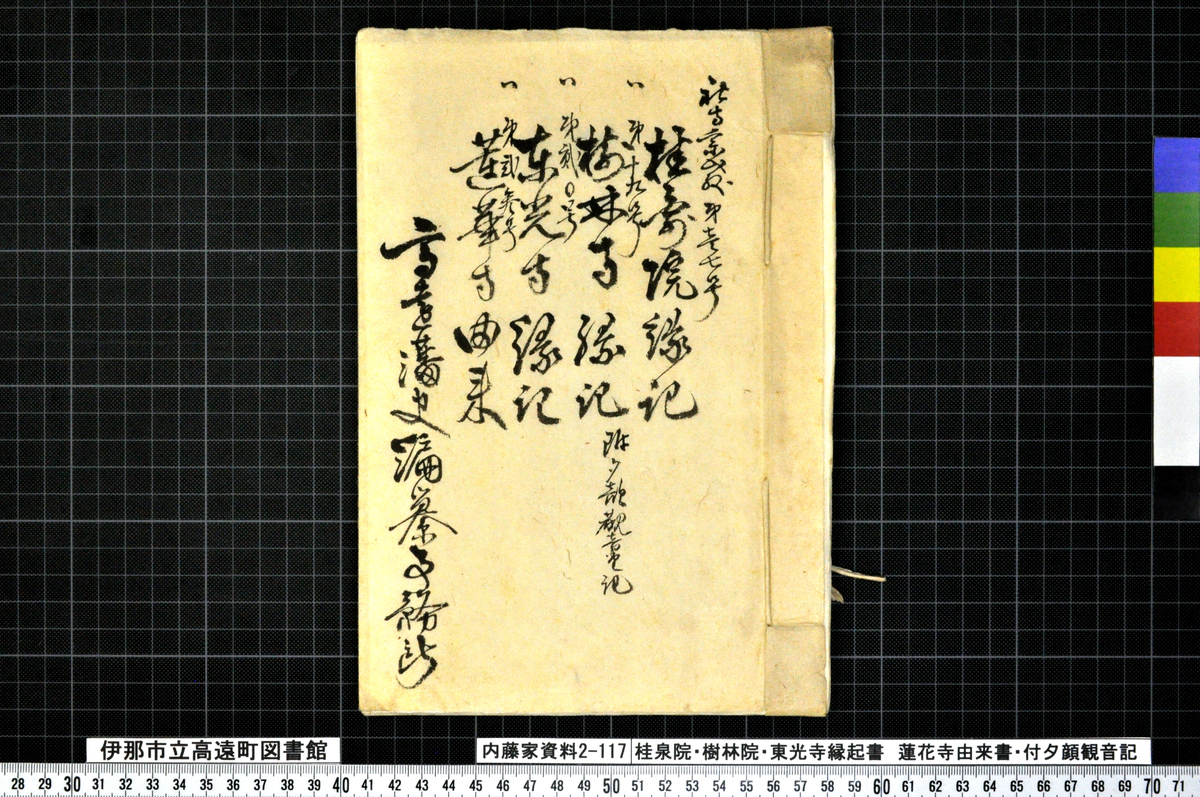 社寺宗教 第壱七号
桂泉院縁記
〃 第十九号
樹林寺縁記 附夕顔観音記
〃 第弐〇号
東光寺縁記
〃 第弐参号
蓮華寺由来
高遠藩史編纂事務所
伊那市立高遠町図書館
内藤家資料2-117 桂泉院・樹林院・東光寺縁起書 蓮花寺由来書・付夕顔観音記
28 29 30 31 32 33 34 35 36 37 38 39 40 41 42 43 44 45 46 47 48 49 50 51 52 53 54 55 56 57 58 59 60 61 62 63 64 65 66 67 68 69 70 71